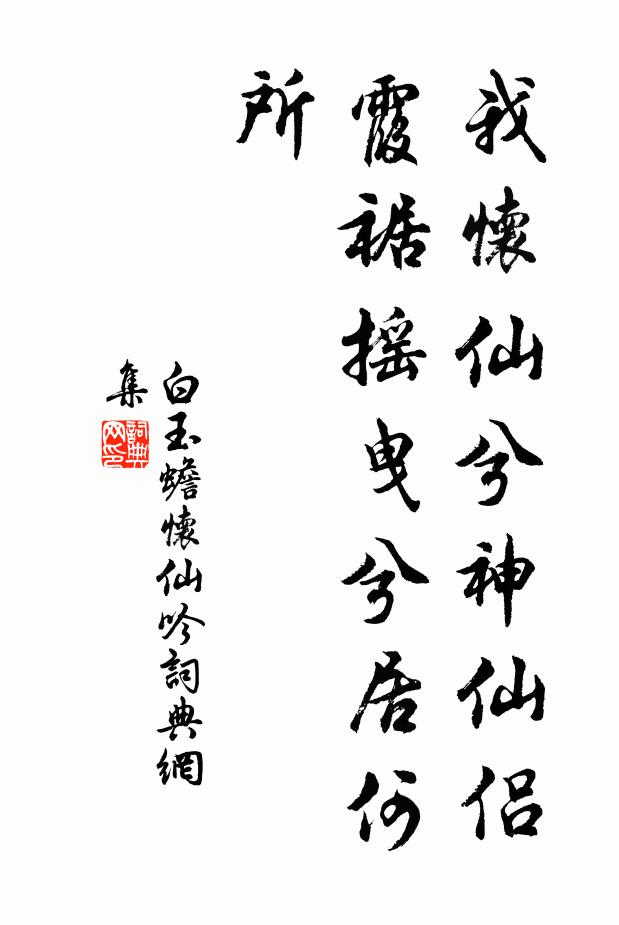 我懷仙兮神仙侶
霞裾摇曳兮居何
所
白玉蟾懷仙吟詞典網
集
詞典
网印